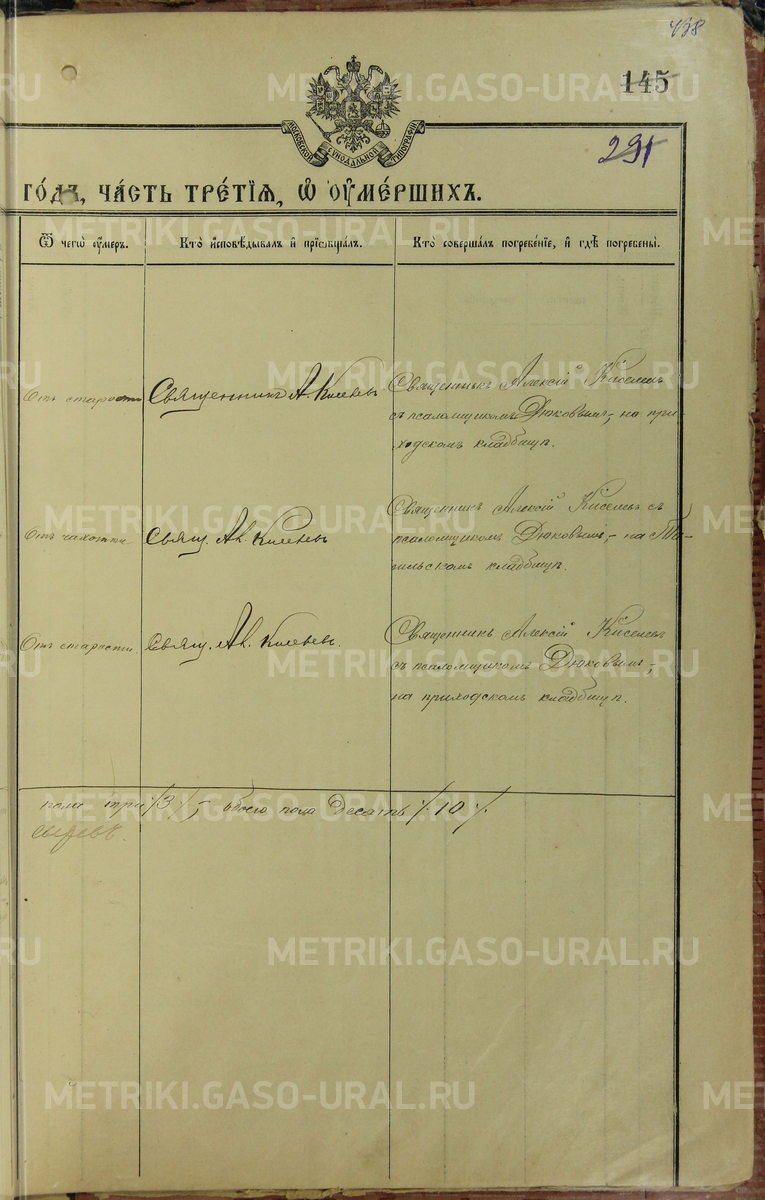 438
145
291
МОСКОВСКОЙ СѴНОДАЛЬНОЙ ТИПОГРАФІИ
ГО́ДЪ, ЧА́СТЬ ТРЕ́ТІѦ, Ѿ ОУ҆МЕ́РШИХЪ.
Ѿ чегѡ̀ оу҆́меръ.
Кто̀ и҆сповѣ́дывалъ и҆ прїѡбща́лъ.
Кто̀ соверша́лъ погребе́нїе, и҆ гдѣ̀ погребены̀.
Отъ старости
Священникъ А. Киселевъ
Священникъ Алексій Киселевъ
съ псаломщикомъ Дюковымъ, на при
ходскомъ кладбищѣ.
Отъ чахотки
Свящ. Ал. Киселевъ
Священникъ Алексій Киселевъ съ
псаломщикомъ Дюковымъ, - на Та-
гильскомъ кладбищѣ.
Отъ старости.
Свящ. Ал. Киселевъ.
Священникъ Алексій Киселевъ
съ псаломщикомъ Дюковымъ,
на приходскомъ кладбищѣ.
пола три /3/, обоего пола десять /10/.
METRIKI.GASO-URAL.RU